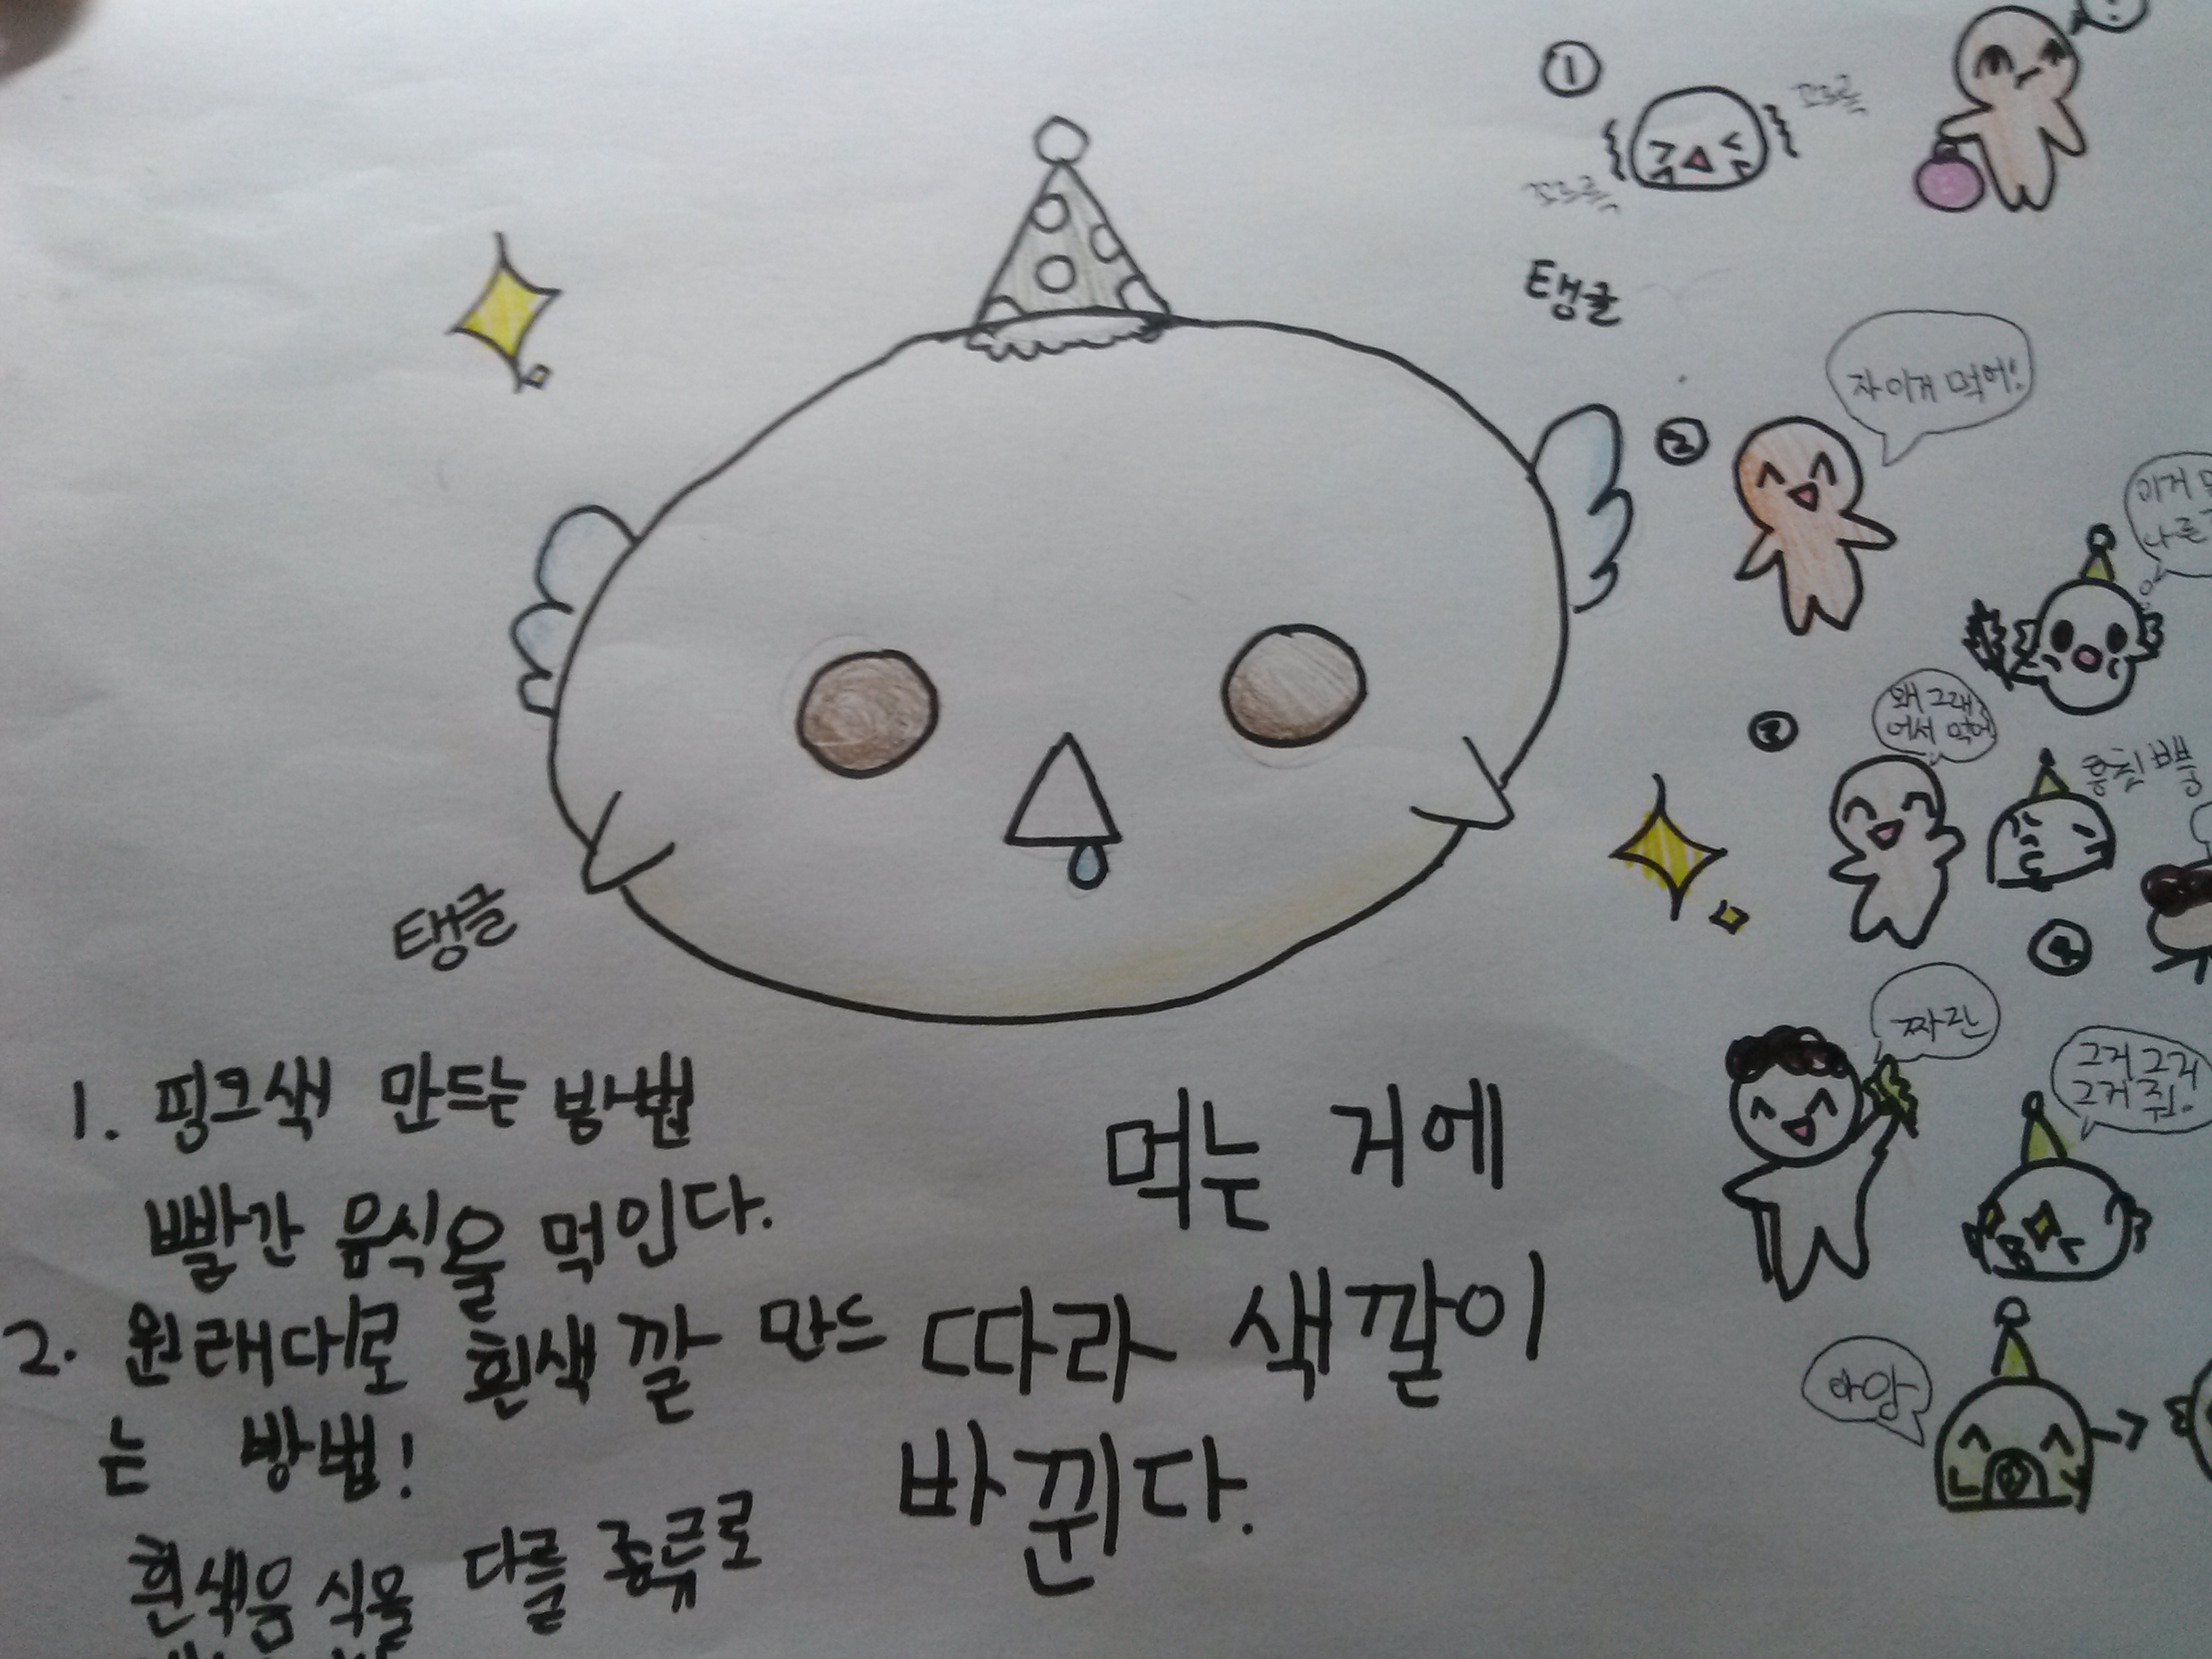 ①
꼬르륵
꼬르륵
탱글
②
자 이거 먹어!
이거
나를
③
왜 그래
어서 먹어
④
짜잔
그거 그거
그거 줘!
아앙
탱글
1. 핑크색 만드는 방법
빨간 음식을 먹인다.
2. 원래대로 흰색깔 만드
는 방법!
흰색음식을 다른 종류로
먹는 거에
따라 색깔이
바뀐다.